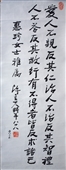 愛人不親反其仁治人不治反其智禮
人不答反其敬行有不得者皆反求諸己
惠珍女士雅屬 陳立夫